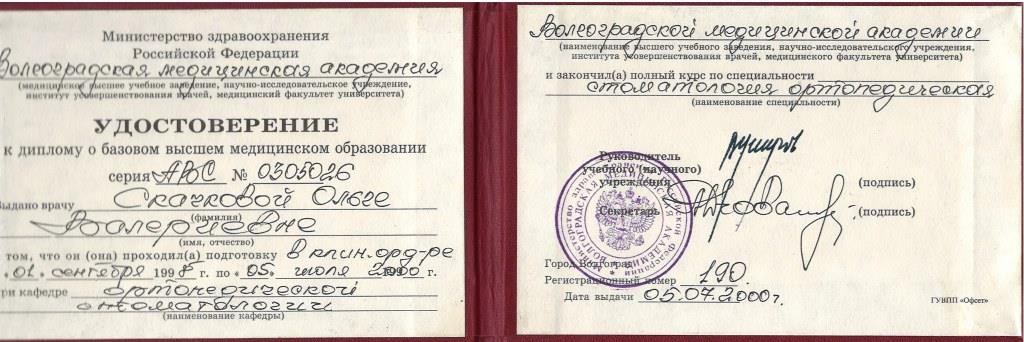 Министерство здравоохранения
Российской Федерации
Волгоградская медицинская академия
(медицинское высшее учебное заведение, научно-исследовательское учреждение,
институт усовершенствования врачей, медицинский факультет университета)
УДОСТОВЕРЕНИЕ
к диплому о базовом высшем медицинском образовании
серия АВС № 0305026
Выдано врачу Скачковой Ольге
(фамилия)
Валериевне
(имя, отчество)
том, что он (она) проходил(а) подготовку в клин.орд-ре
01. сентября 1998 г. по "05" июля 2000 г.
при кафедре ортопедической
стоматологии
(наименование кафедры)
Волгоградской медицинской академии
(наименование высшего учебного заведения, научно-исследовательского учреждения,
института усовершенствования врачей, медицинского факультета университета)
и закончил(а) полный курс по специальности
стоматология ортопедическая
(наименование специальности)
Руководитель
учебного (научного)
учреждения
(подпись)
Секретарь
(подпись)
Город Волгоград
Регистрационный номер 190
Дата выдачи 05.07.2000г.
ГУВПП «Офсет»